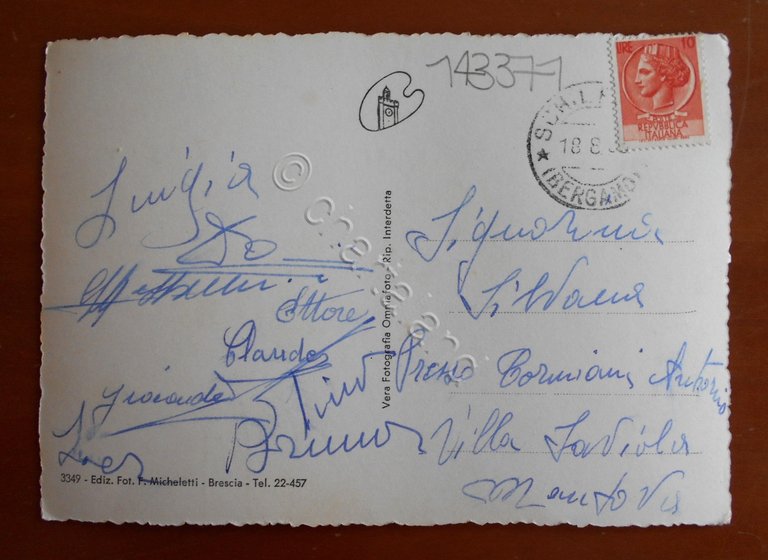 143371
LIRE 10
POSTE
REPVBBLICA
ITALIANA
SCHILP
18 8
(BERGAMO)
Luigia
Ettore
Claudes
Gioconda
Tino
Bruno
Vera Fotografia Omniafoto - Rip. Interdetta
Signorina
Silvana
Presso Cormiani Antonio
Villa Saviola
Mantova
3349 - Ediz. Fot. F. Micheletti - Brescia - Tel. 22-457